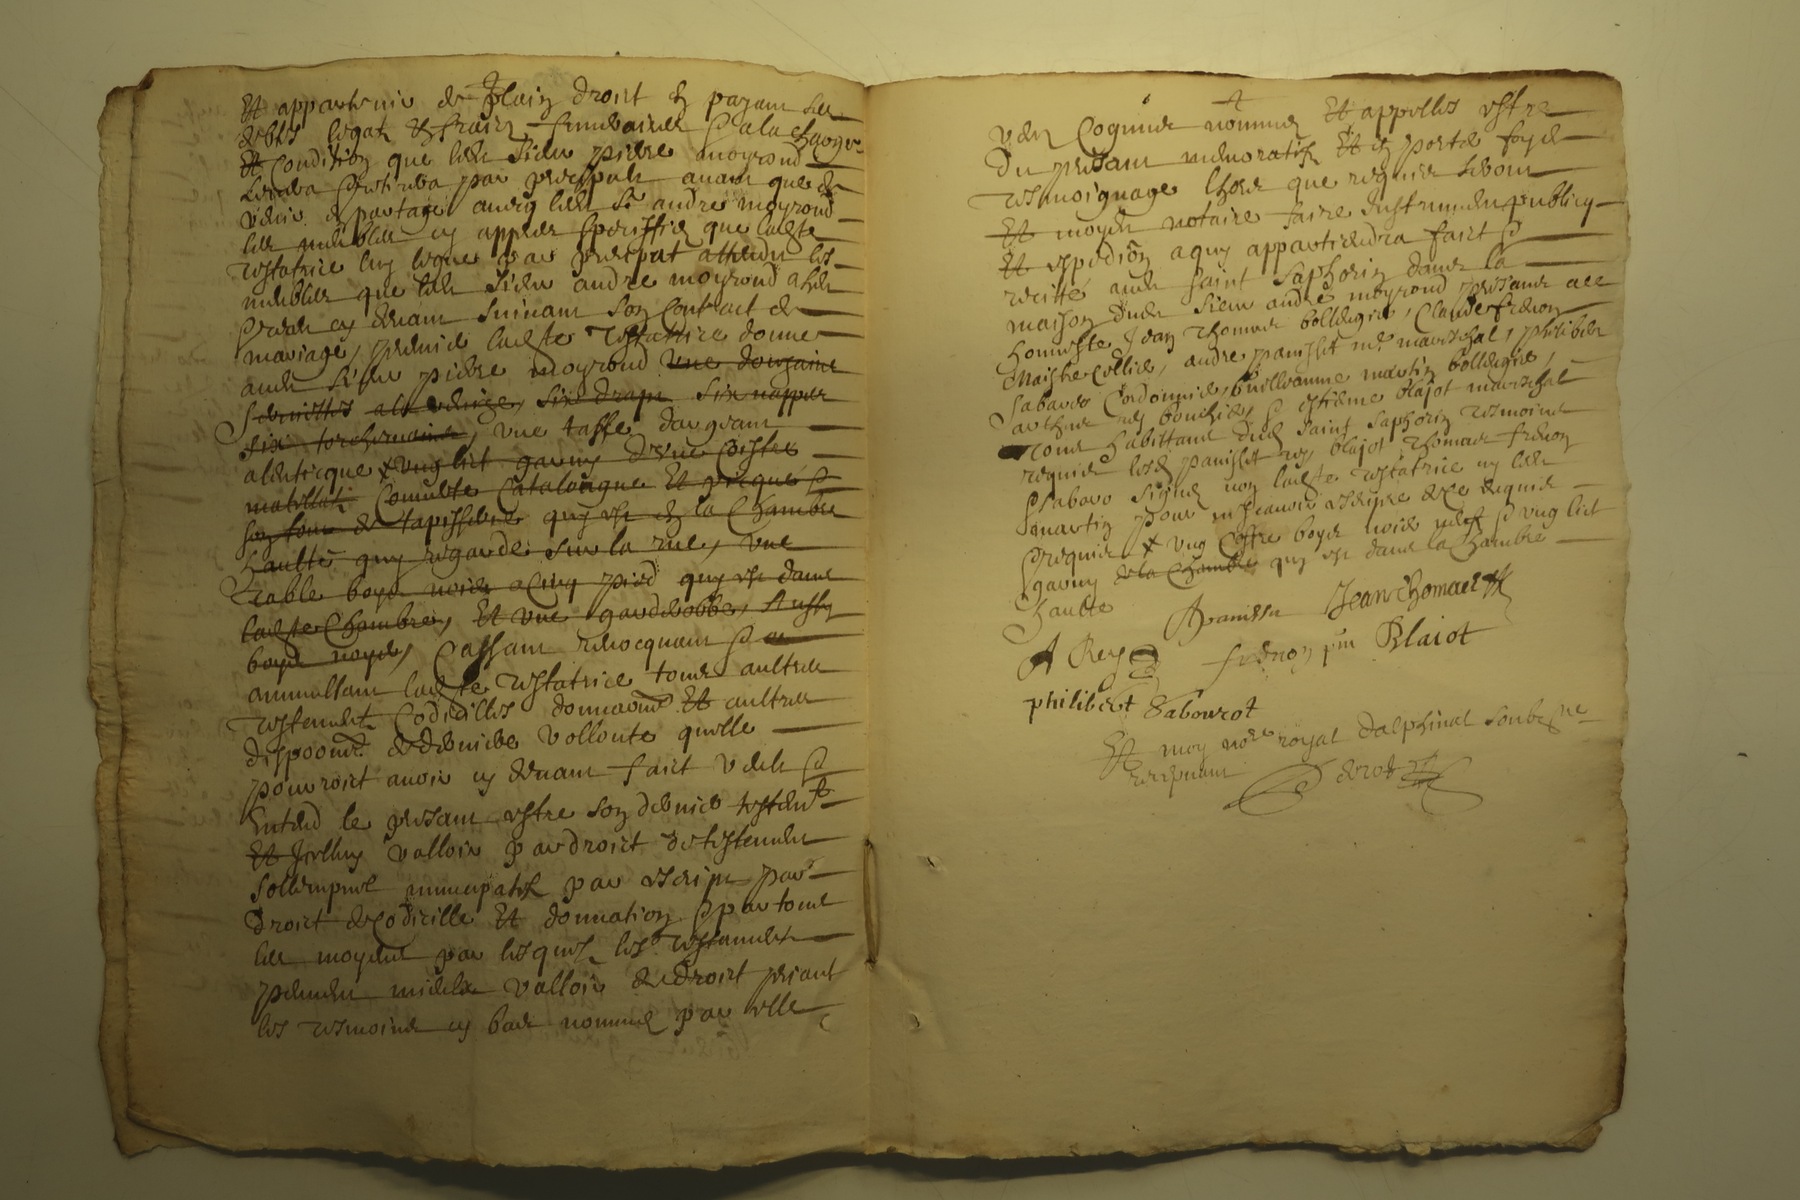 Et appartenir de plain droict en payant ses
debtes legatz et fraiz funeraires et a la charge
Et condition que ledit sieur pierre moyroud
levera et retirera par precipult avant que de
venir en partage avecq ledit sr andre moyroud
les meubles cy appres speciffiez que ladicte
testatrice luy legue par preciput attendu les
meubles que ledit sieur andre moyroud a heu
et receu cy devant suivant son contract de
mariage, premier ladicte testatrice donne
audit sieur pierre moyroud une douzaine
serviettes a la venize, six draps six nappes
six torchemains, une tasse dargent
alenticque x ung lict garny dune coistre
mattellatz couverte catalougne Et picqué et
son tour de tapisserie quy est en la chambre
haulte quy regarde sur la rue, une
table boys noier a cinq pied quy est dans
ladicte chambre, Et une garderobbe, Aussy
boys noyer, Cassant revocquant et
annullant ladicte testatrice tous aultres
testementz codicilles donnaons Et aultres
dispoons de derniere vollonte quelle
pourroict avoir cy devant faict veult et
entend le present estre son dernier testement
Et icelluy valloir par droict de testement
sollempnel nuncupatif par escript par
droict de codicille Et donnation et par tous
les moyens par lesquelz les testamentz
peuvent mieulx valloir de droict priant
les tesmoins cy bas nommes par elle
veus cogneus nommes Et appelles estre
du present memoratifz Et en porter foy de
tesmoignage lhors que requis seront
Et moyd notaire faire instrument publicq
Et expedion a quy appartiendra faict et
recitté audit saint saphorin dans la
maison dudit sieur andré moyroud presents ace
honneste Jean Thomas bollengier, Claude fredon
Maistre cellier, andre panisset me mareschal, philibert
sabarot cordonnier, guilleaume martin bollengier,
arthus rey bouchier, et estienne blajot mareschal
tous habittants dudit saint saphorin tesmoins
requis lesd panisset rey blajot, thomas fredon
et sabarot signes non ladicte testatrice ny ledit
martin pour ne scavoir escripre de ce enquis
et requis x ung coffre boys noier neuf et ung lict
garny de la chambre quy est dans la chambre
haulte
Apanisset Jean Thomas
A Rey fredon pnt Blaiot
philibert Sabourot
Et moy nore royal dalphinal soubzne
recepvant